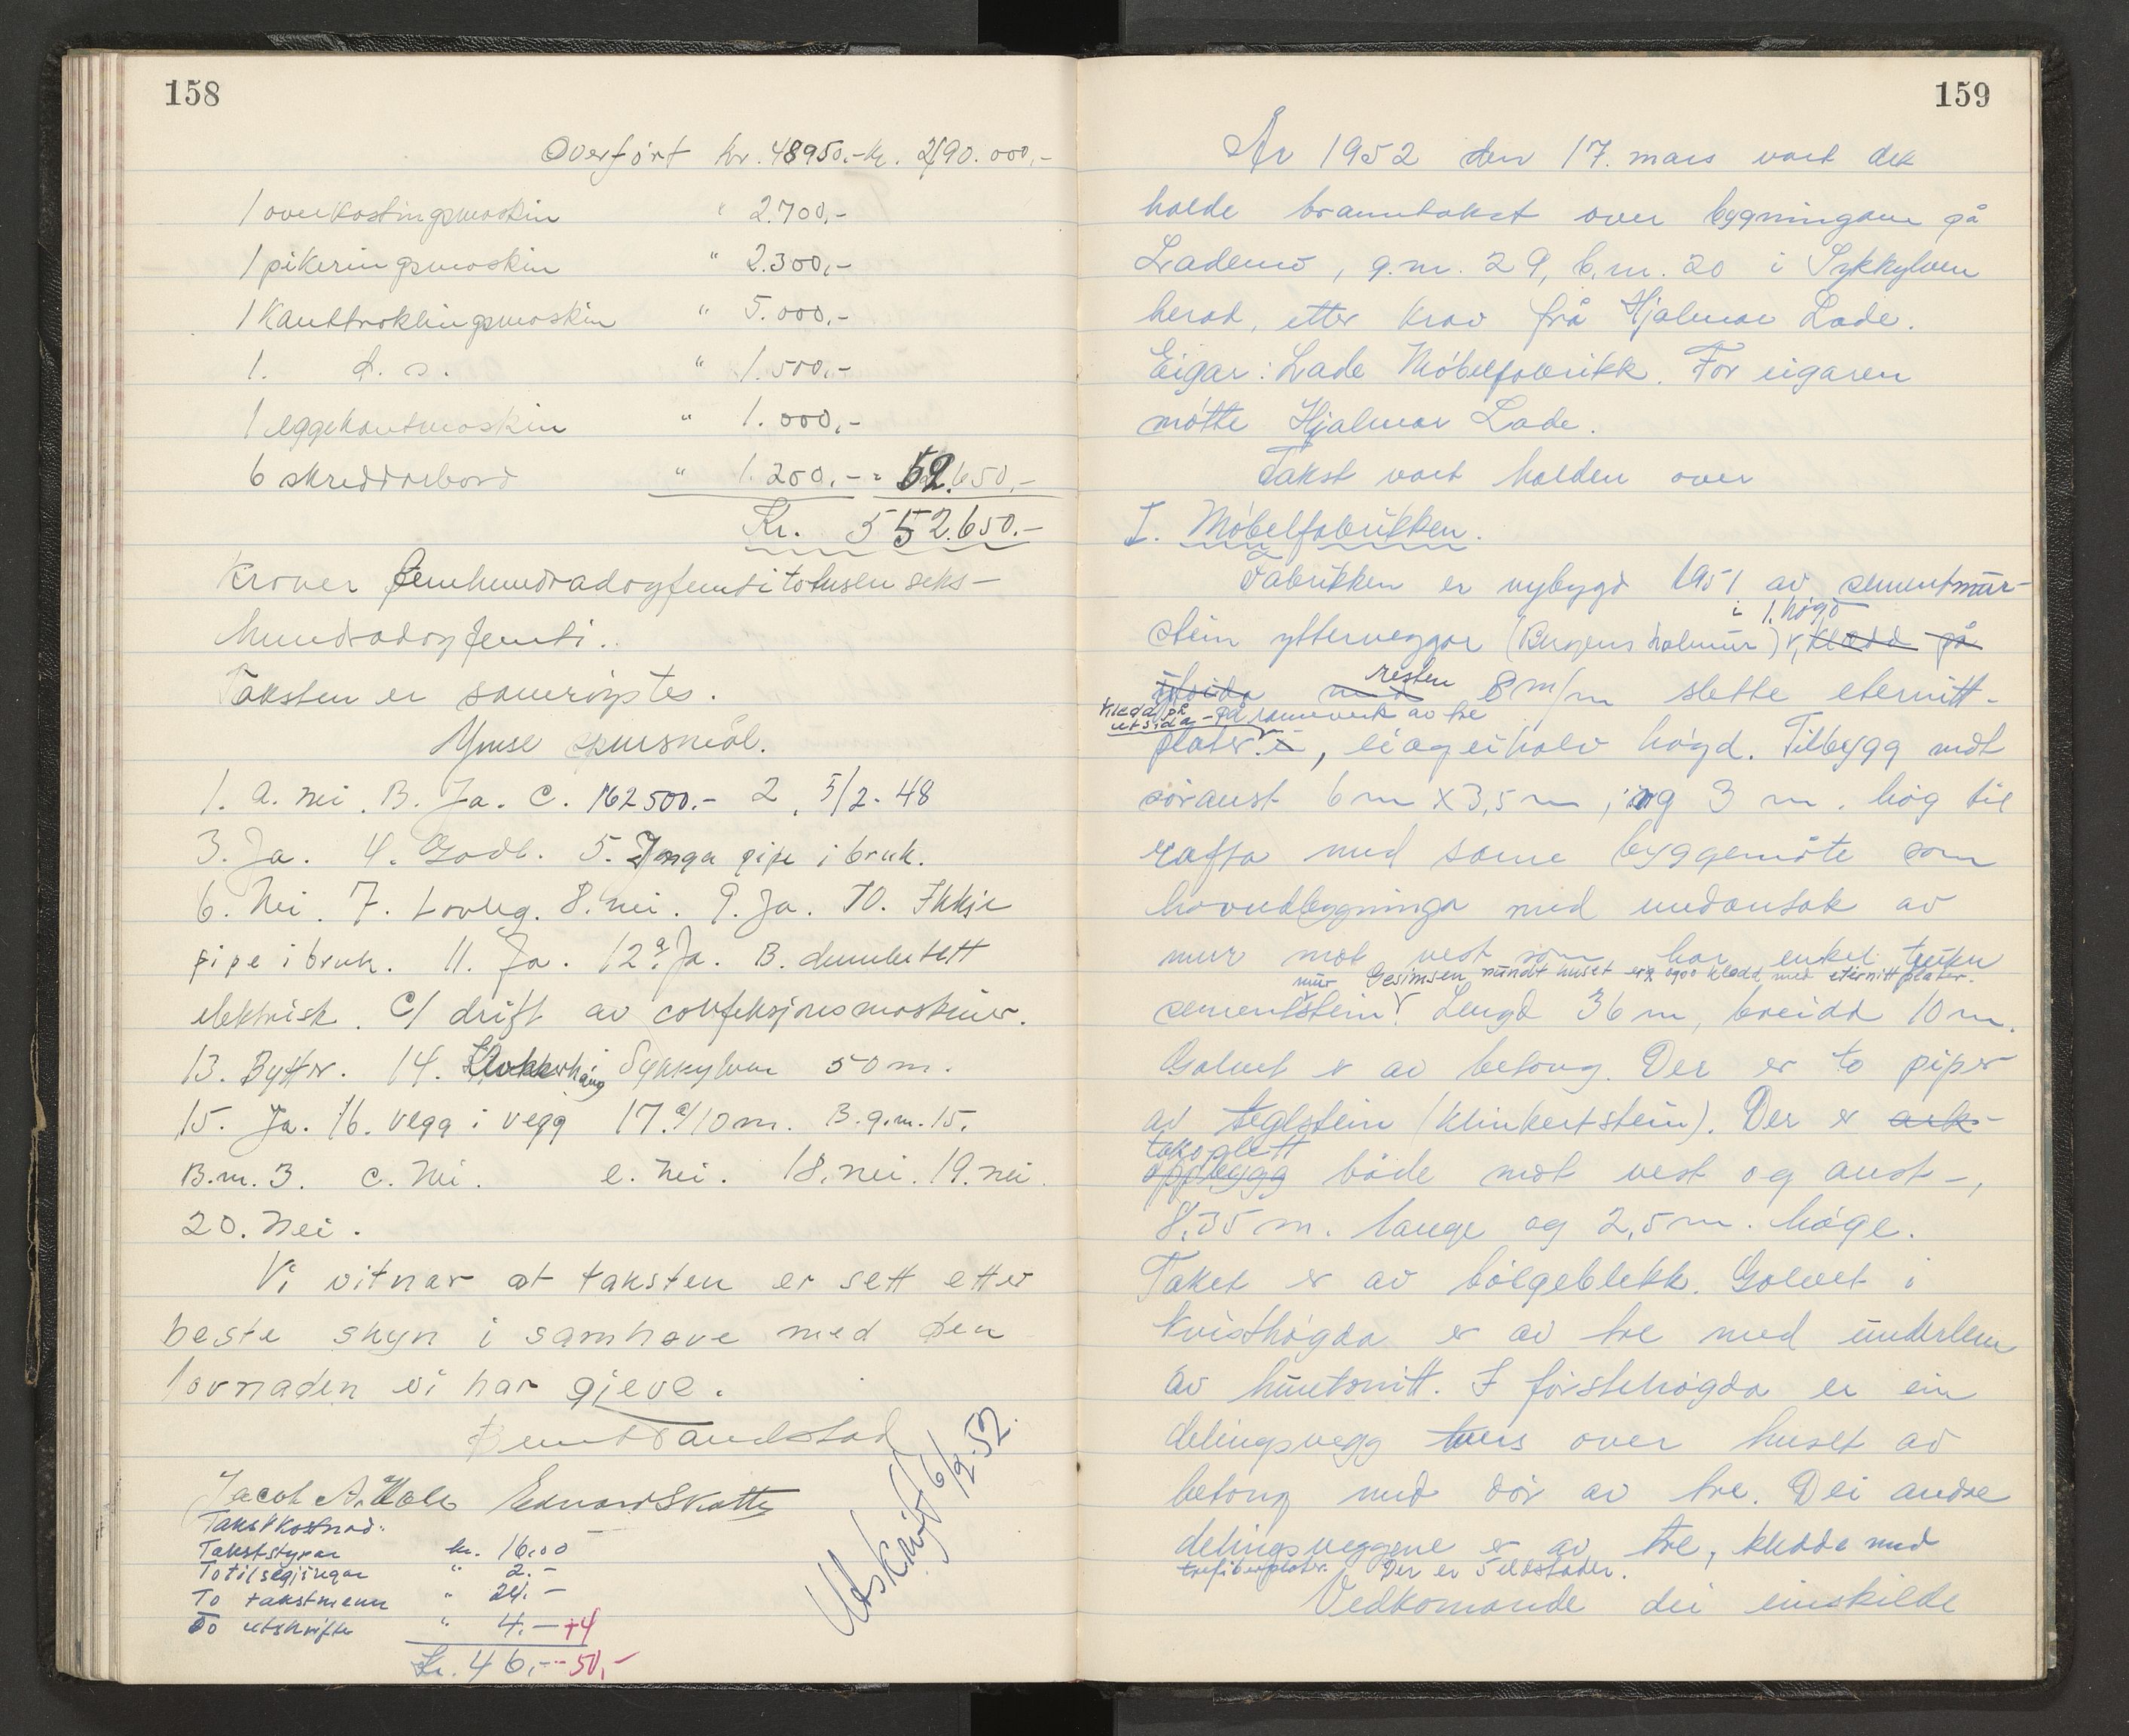 158
Overført kr. 48950.- kr. 490.000,-
1 overkastingsmaskin " 2.700,-
1 pikeringsmaskin " 2.300,-
1 Kanttråklingsmaskin " 5.000,-
1. d. s. " 1.500,-
1 eggekantmaskin " 1.000,-
6 skreddarbord " 1.200,- = 62.650,-
Kr. 552.650.-
Kroner femhundradogfemtitotusen seks-
hundradogfemti.
Taksten er samrøystes.
Ymse spursmål.
1. A. Nei. B. Ja. C. 162500.- 2. 5/2-48
3. Ja. 4. Godt. 5. Inga pipe i bruk.
6. Nei. 7. Lovleg. 8. nei. 9. Ja. 10. Ikkje
pipe i bruk. 11. Ja. 12 a. Ja. B. dunlutett
elektrisk. C/ drift av confeksjonsmaskiner.
13. Bytter. 14. Sykkylven 50 m.
15. Ja. 16. vegg i vegg 17. a/ 10 m. B. g.m. 15.
B.m. 3. C. Nei. e. Nei. 18. nei. 19. nei.
20. Nei.
Vi vitnar at taksten er sett etter
beste skyn i samhøve med den
lovnaden vi har gjeve.
Bernt Tandstad
Jacob A. Hole Edvard Skotte
Utskrift 6/2-52
Takstkostnad:
Takststyrar kr. 16.00
To tilsegjingar " 2.-
To takstmenn " 24.-
To utskrifter " 4.- +4
Kr. 46,- - 50,-
159
År 1952 den 17. mars vart det
halde branntakst over bygningane på
Lademo, g.nr. 29, b.nr. 20 i Sykkylven
herad, etter krav frå Hjalmar Lade.
Eigar: Lade Møbelfabrikk. For eigaren
møtte Hjalmar Lade.
Takst vart halden over
I. Møbelfabrikken.
Fabrikken er nybygd 1951 av sementmur-
i 1. høgd
stein ytterveggar (Bergens holmur), kledd på
resten
utsida med 8 m/m slette eternitt-
kledd på utsida - på ramverk av tre
plater. , ei og ei halv høgd. Tilbygg mot
søraust 6 m x 3,5 m, og 3 m. høg til
rafta med same byggemåte som
hovudbygninga med undantak av
mur mot vest som har enkel
mur Gesimsen rundt huset er og kledd med eternittplater.
sementstein. Lengd 36 m, breidd 10 m.
Golvet er av betong. Der er to piper
av teglstein (klinkertstein). Der er ark-
takoplett
oppbygg både mot vest og aust -,
8.35 m. lange og 2,5 m. høge.
Taket er av bølgeblekk. Golvet i
kvisthøgda er av tre med underlem
av huntonitt. I førstehøgda er ein
delingsvegg tvers over huset av
betong med dør av tre. Dei andre
delingsveggene er av tre, kledde med
trefiberplater. Der er 5 eldstader.
Vedkomande dei einskilde